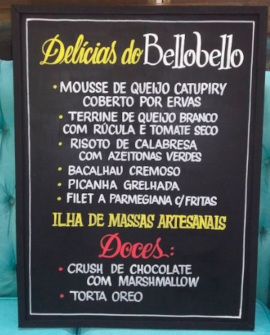 Delícias do Bellobello
• MOUSSE DE QUEIJO CATUPIRY
COBERTO POR ERVAS
• TERRINE DE QUEIJO BRANCO
COM RÚCULA E TOMATE SECO
• RISOTO DE CALABRESA
COM AZEITONAS VERDES
• BACALHAU CREMOSO
• PICANHA GRELHADA
• FILET A PARMEGIANA C/FRITAS
ILHA DE MASSAS ARTESANAIS
Doces:
• CRUSH DE CHOCOLATE
COM MARSHMALLOW
• TORTA OREO